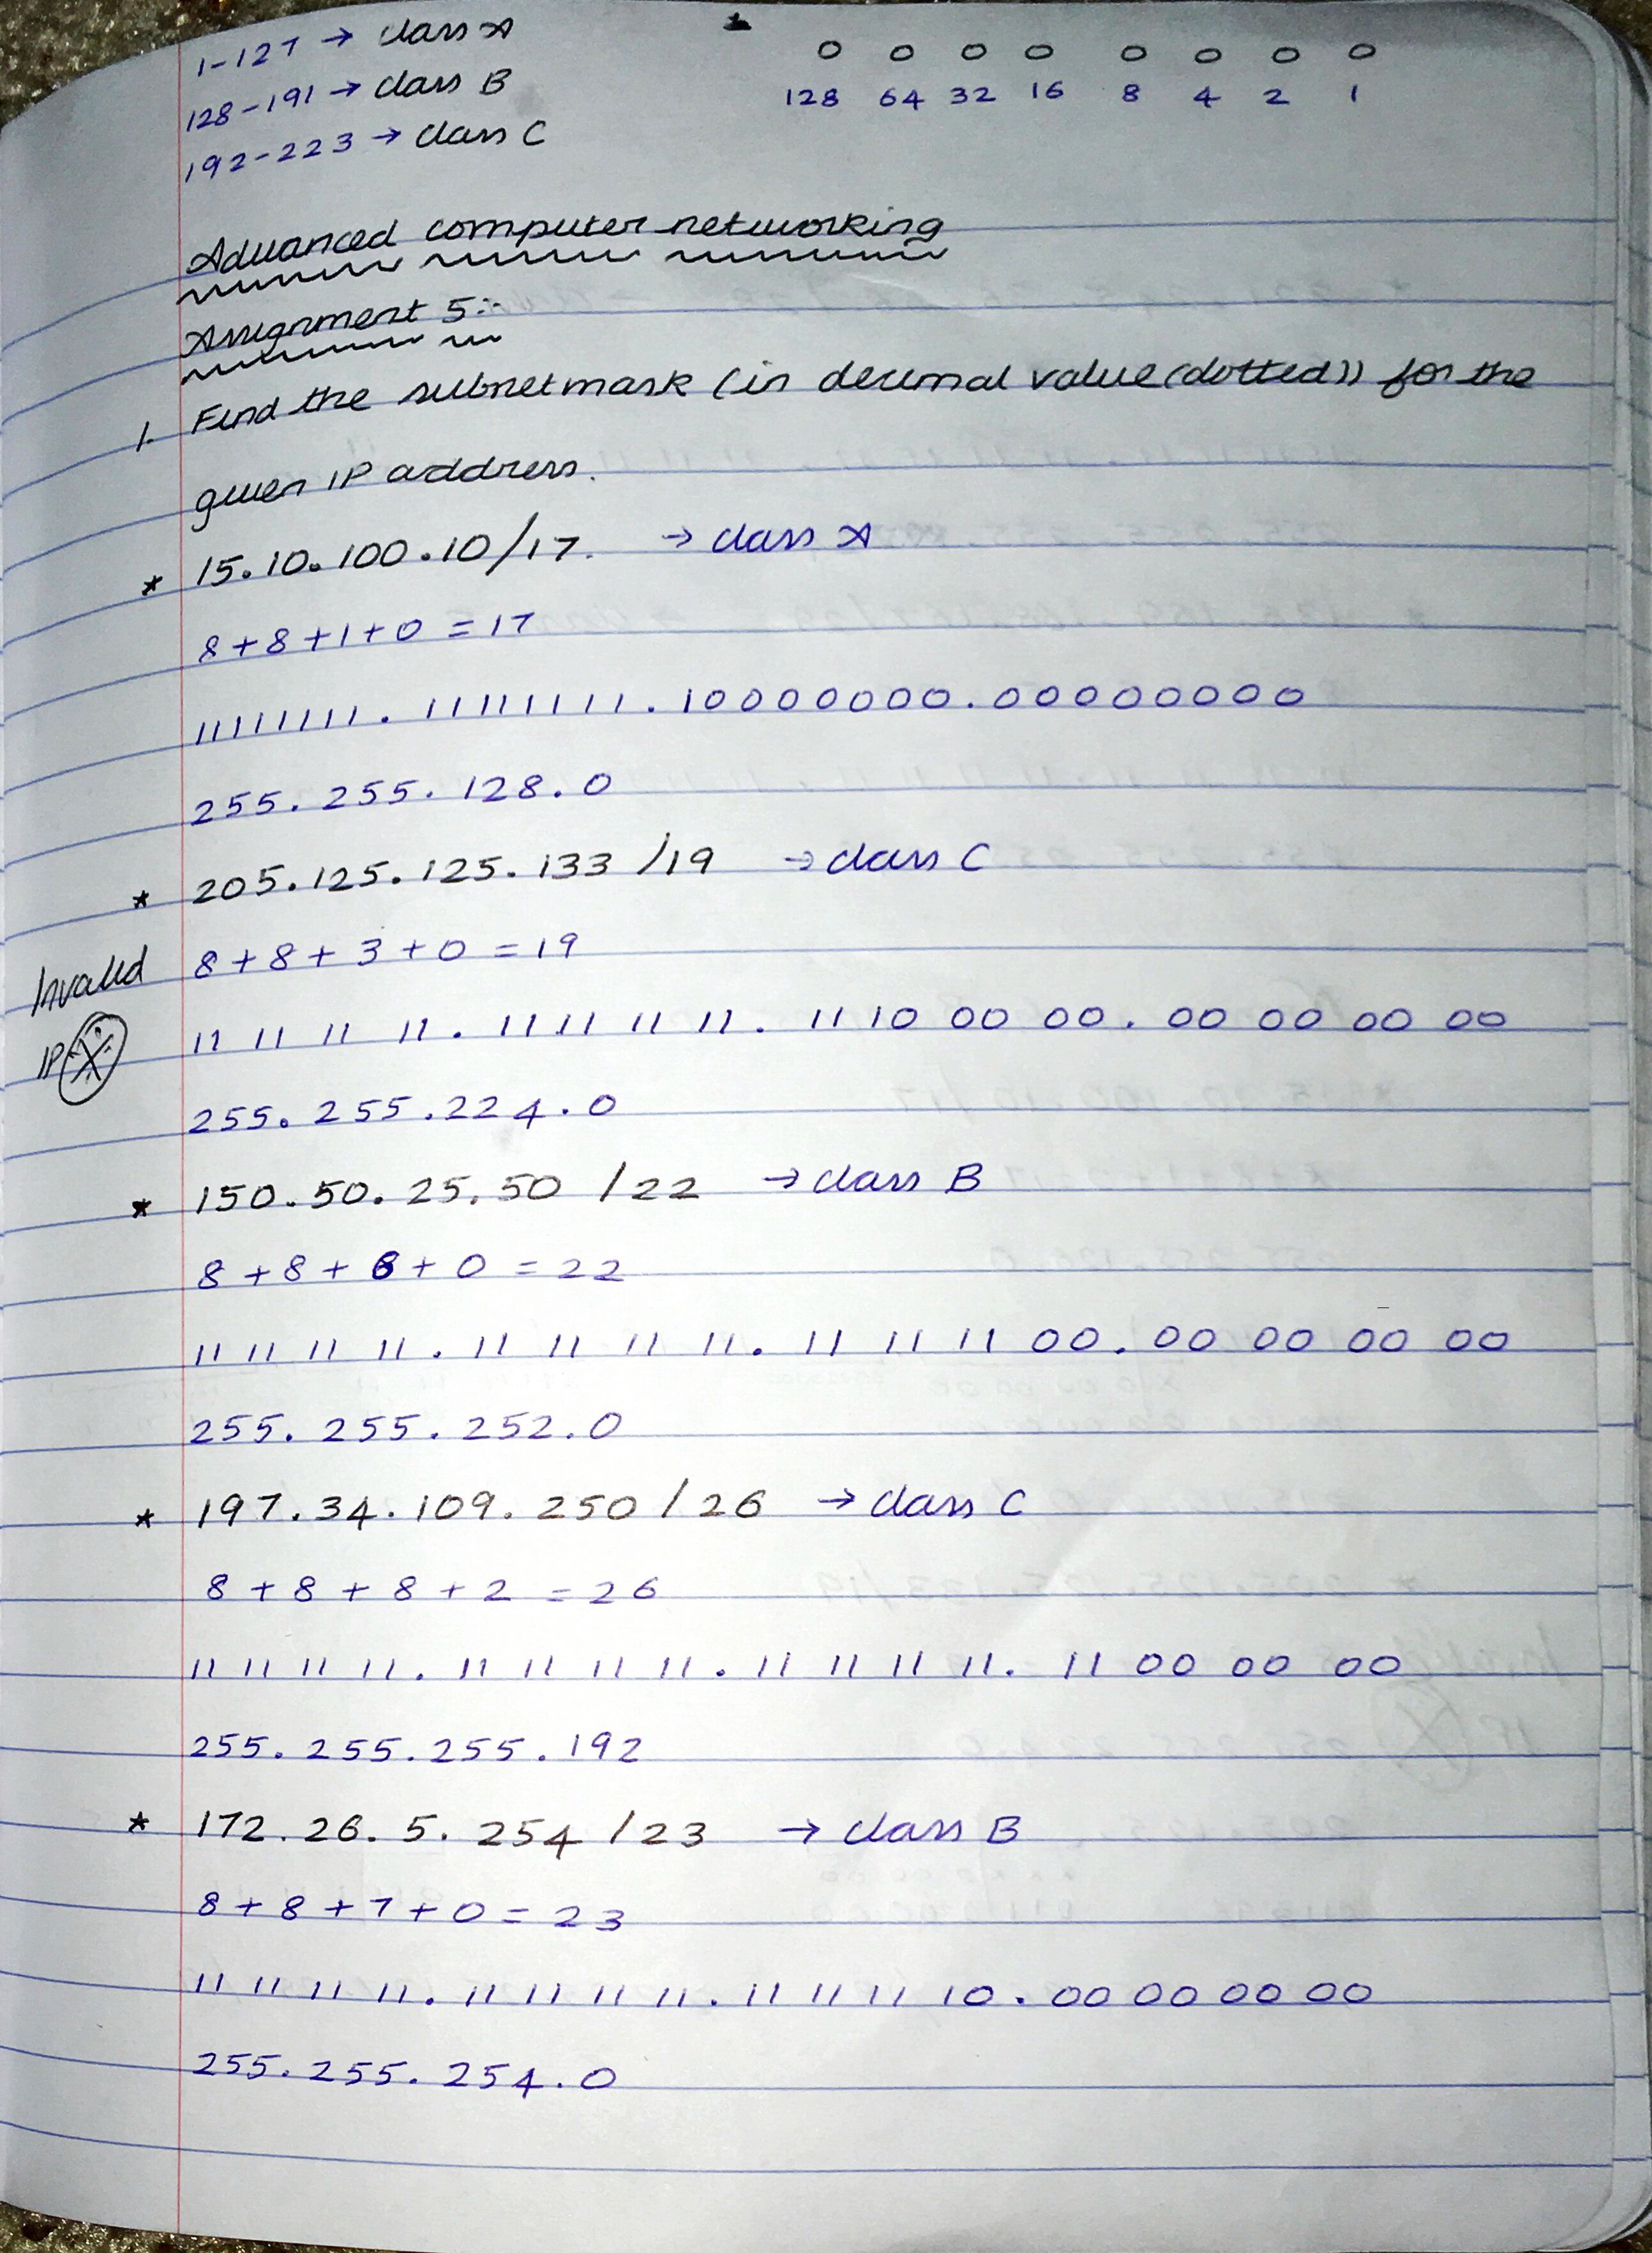 1-127 → class A
128-191 → class B
192-223 → class C
0 0 0 0 0 0 0 0
128 64 32 16 8 4 2 1
Advanced computer networking
Assignment 5:-
1. Find the subnetmask (in decimal value(dotted)) for the
given IP address.
* 15.10.100.10/17. → class A
8+8+1+0 = 17
11111111.11111111.10000000.00000000
255.255.128.0
* 205.125.125.133 /19 → class C
Invalid
IP X
8+8+3+0 = 19
11 11 11 11 . 11 11 11 11 . 11 10 00 00 . 00 00 00 00
255.255.224.0
* 150.50.25.50 /22 → class B
8+8+6+0 = 22
11 11 11 11 . 11 11 11 11 . 11 11 11 00 . 00 00 00 00
255.255.252.0
* 197.34.109.250 /26 → class C
8+8+8+2 = 26
11 11 11 11 . 11 11 11 11 . 11 11 11 11 . 11 00 00 00
255.255.255.192
* 172.26.5.254 /23 → class B
8+8+7+0 = 23
11 11 11 11 . 11 11 11 11 . 11 11 11 10 . 00 00 00 00
255.255.254.0